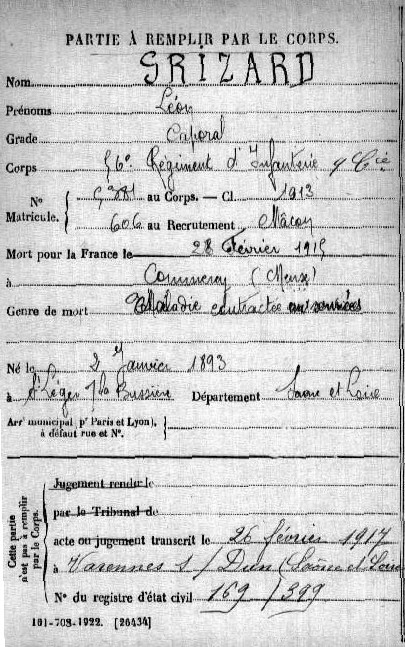 PARTIE À REMPLIR PAR LE CORPS.
Nom GRIZARD
Prénoms Léon
Grade Caporal
Corps 56e Régiment d'Infanterie 9 Cie
N° Matricule. au Corps. — Cl. 1913
606 au Recrutement Mâcon
Mort pour la France le 28 février 1915
à Commercy (Meuse)
Genre de mort Maladie contractée
Né le 2 Janvier 1893
à St Léger s/ la Bussière Département Saone et Loire
Arrt municipal (pr Paris et Lyon),
à défaut rue et N°.
Cette partie n'est pas à remplir par le Corps.
Jugement rendu le
par le Tribunal de
acte ou jugement transcrit le 26 février 1917
à Varennes s/ Dun (Saône et Loire
N° du registre d'état civil 169/399
101-708-1922. [26434]